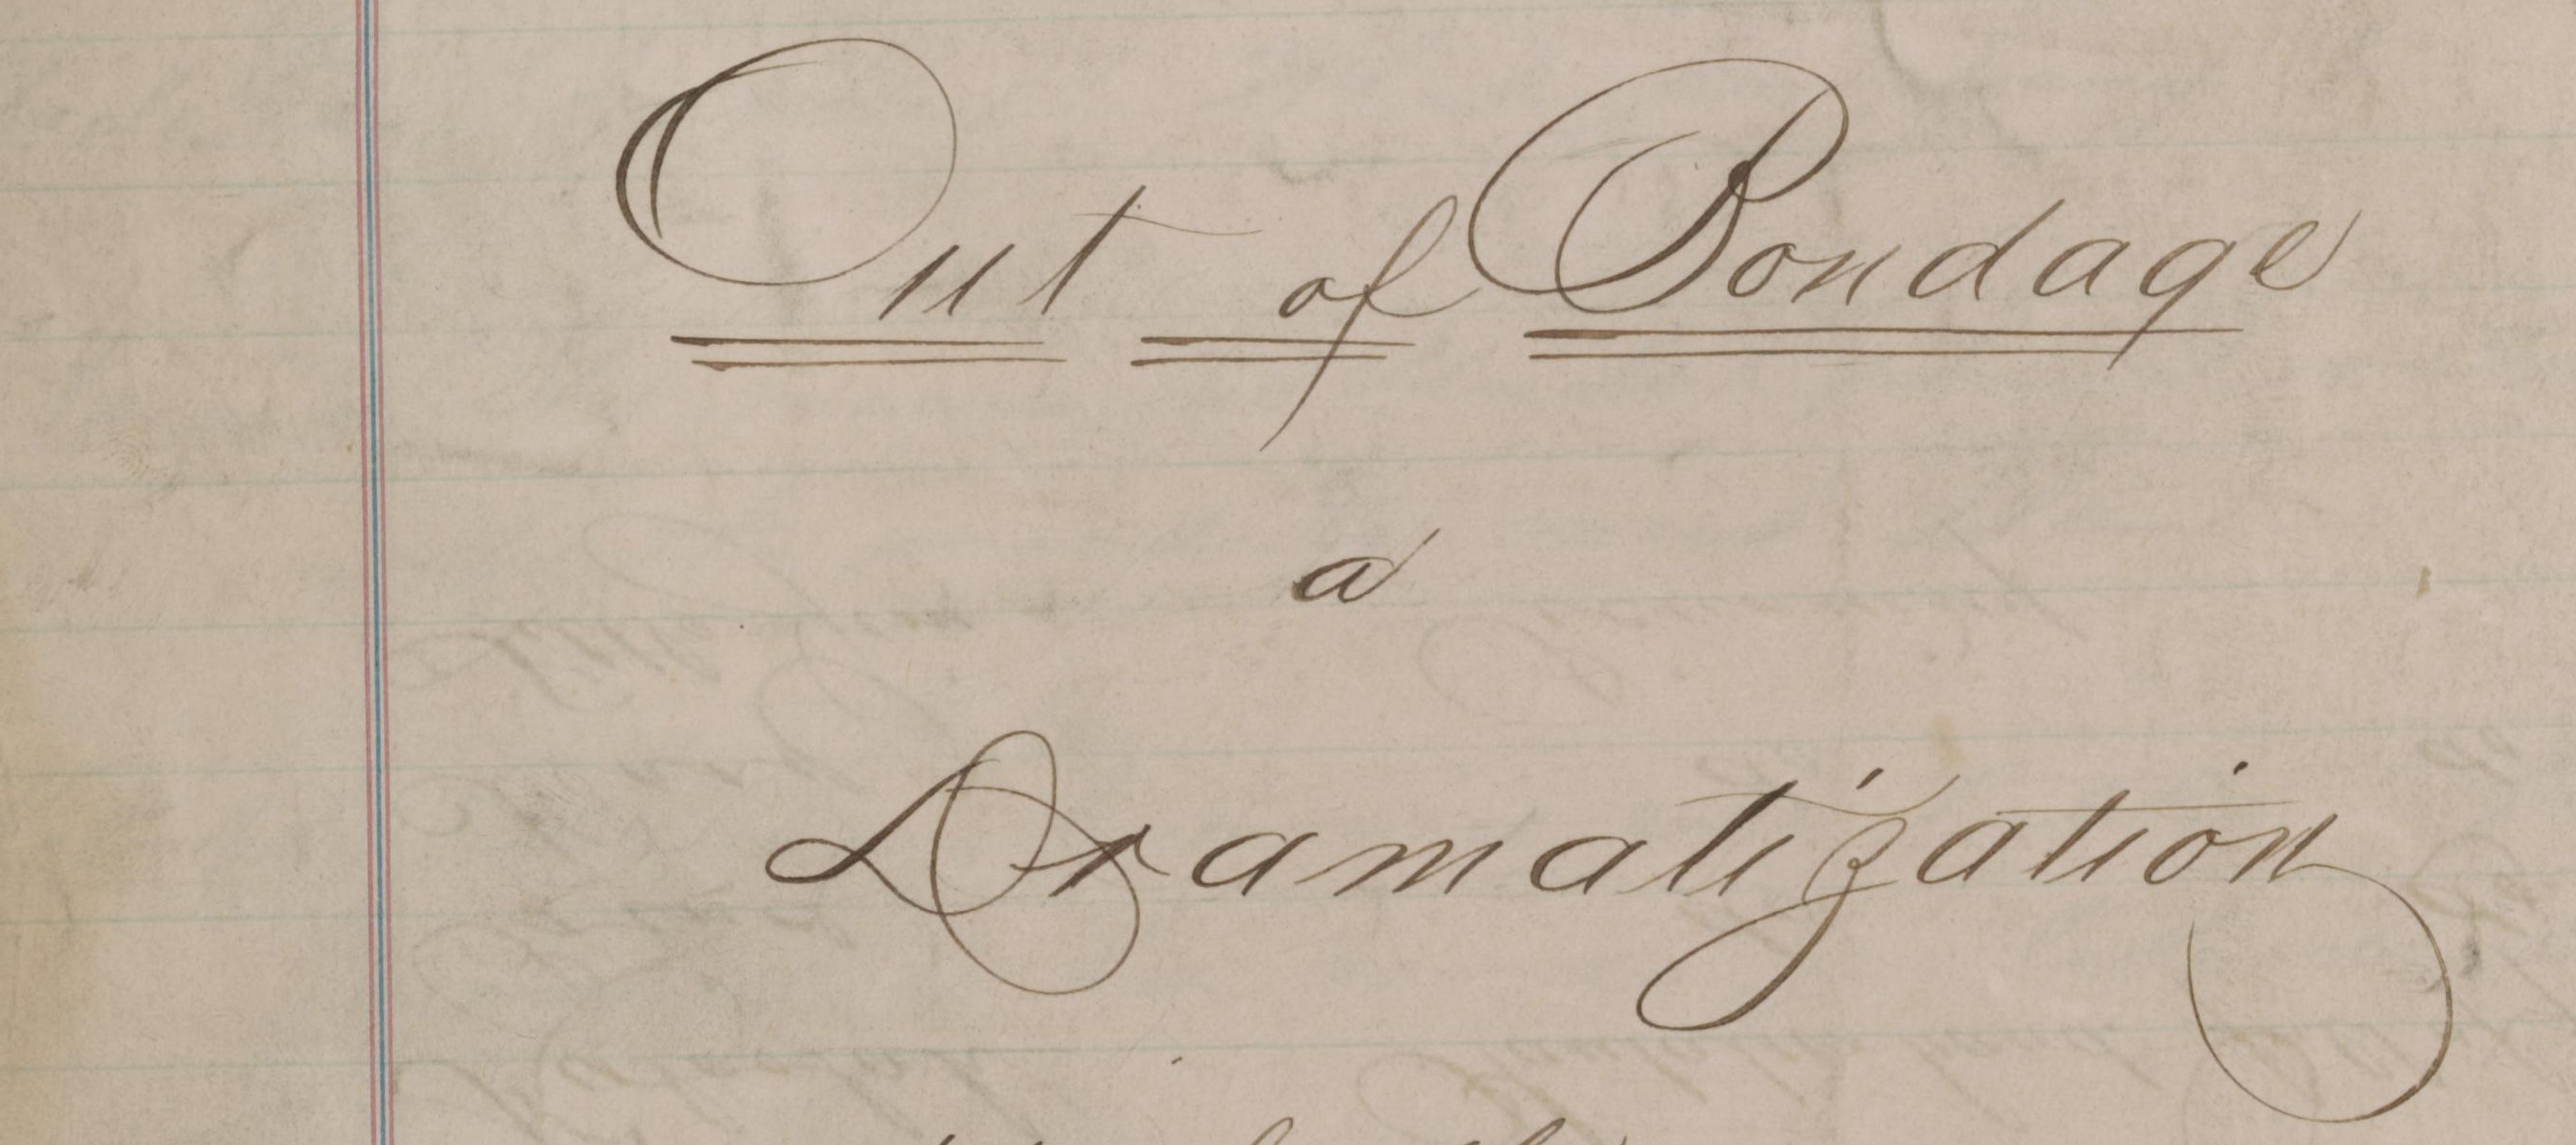 Out of Bondage
a
Dramatization